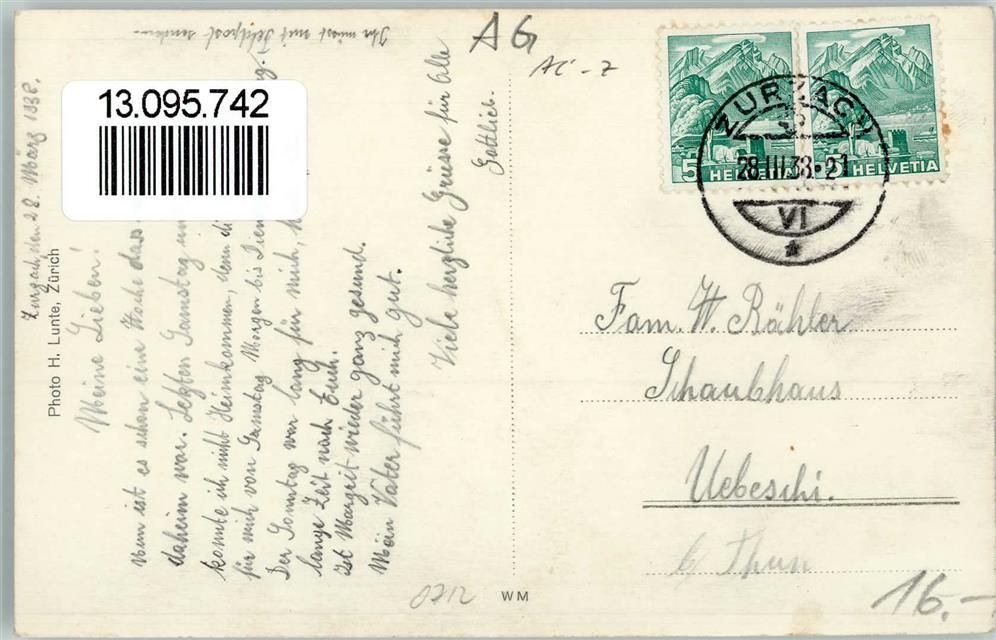 Ihr müsst mit Feldpost senden.
Zurzach, den 28. März 1938.
Meine Lieben!
Nun ist es schon eine Woche das
daheim war. Letzten Samstag
konnte ich nicht Heimkommen, denn
für mich von Samstag Morgen bis
Der Sonntag war lang für mich,
lange Zeit nach Euch.
Ist Margrit wieder ganz gesund.
Mein Vater führt mich gut.
Viele herzliche Grüsse für Alle
Gottlieb.
13.095.742
Photo H. Lunte, Zürich
AG
AG - Z
0712
WM
5 HELVETIA
5 HELVETIA
ZURZACH
28.III.38.-21
VI
Fam. W. Rähler
Schaubhaus
Uebeschi.
b/ Thun
16.-